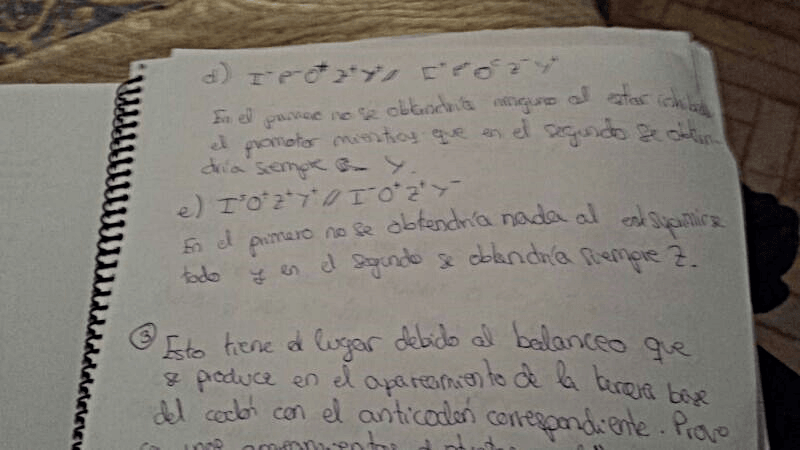 d) I⁻P⁻O⁺Z⁺Y⁺// I⁺P⁺OᶜZ⁻Y⁺
En el primero no se obtendría ninguno al estar
el promotor mientras que en el segundo se obten-
dría siempre Y.
e) IˢO⁺Z⁺Y⁺// I⁻O⁺Z⁺Y⁻
En el primero no se obtendría nada al
todo y en el segundo se obtendría siempre Z.
③ Esto tiene el lugar debido al balanceo que
se produce en el apareamiento de la tercera base
del codón con el anticodón correspondiente. Provo